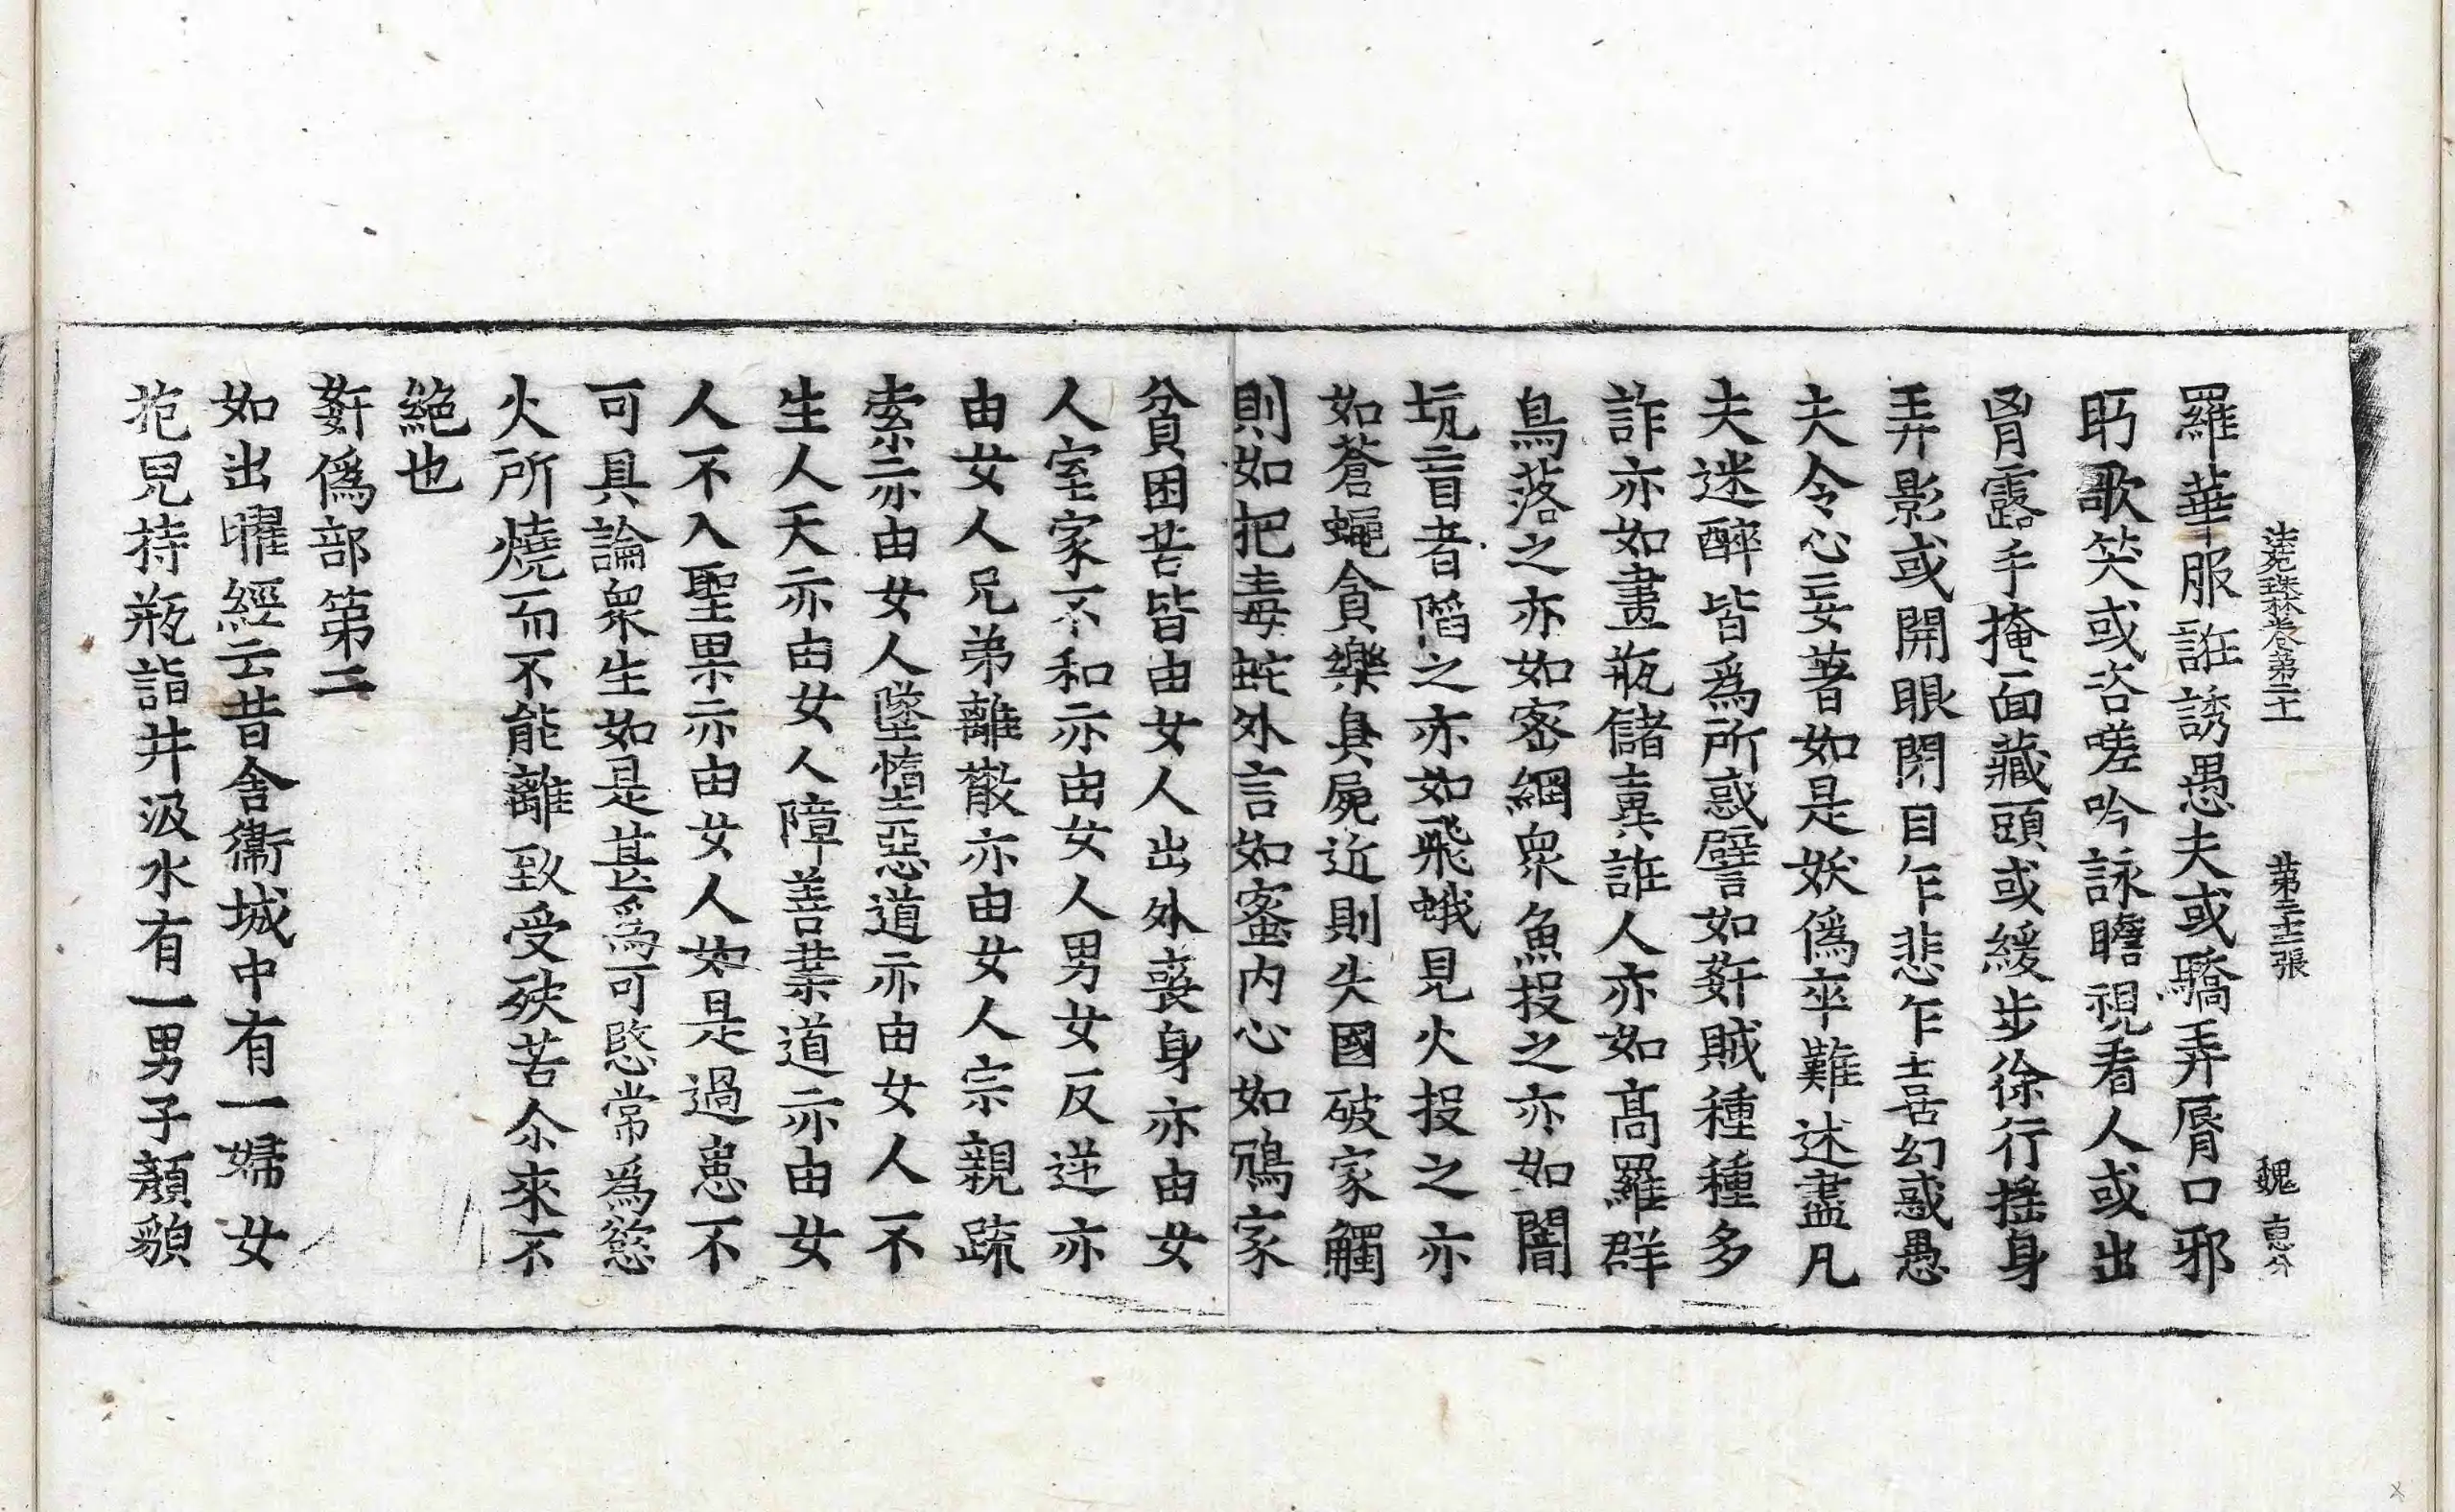 法苑珠林卷第二十一 第三十三張 魏恵分
羅華服誑誘愚夫或驕弄脣口邪
眄歌笑或咨嗟吟詠瞻視看人或出
胷露手掩面藏頭或緩步徐行揺身
弄影或開眼閇目乍悲乍喜幻惑愚
夫令心妄著如是妖偽卒難述盡凡
夫迷醉皆爲所惑譬如姧賊種種多
詐亦如畫瓶儲糞誑人亦如髙羅群
鳥落之亦如密網衆魚投之亦如闇
坑盲者陷之亦如飛蛾見火投之亦
如蒼蠅貪樂臭屍近則失國破家觸
則如把毒蛇外言如蜜内心如鴆家
貧困苦皆由女人出外喪身亦由女
人室家不和亦由女人男女反逆亦
由女人兄弟離散亦由女人宗親疏
索亦由女人墜墮惡道亦由女人不
生人天亦由女人障善業道亦由女
人不入聖果亦由女人如是過患不
可具論衆生如是甚爲可愍常爲慾
火所燒而不能離致受殃苦尒來不
絕也
姧僞部第二
如出曜經云昔舍衞城中有一婦女
抱兒持瓶詣井汲水有一男子顏貌